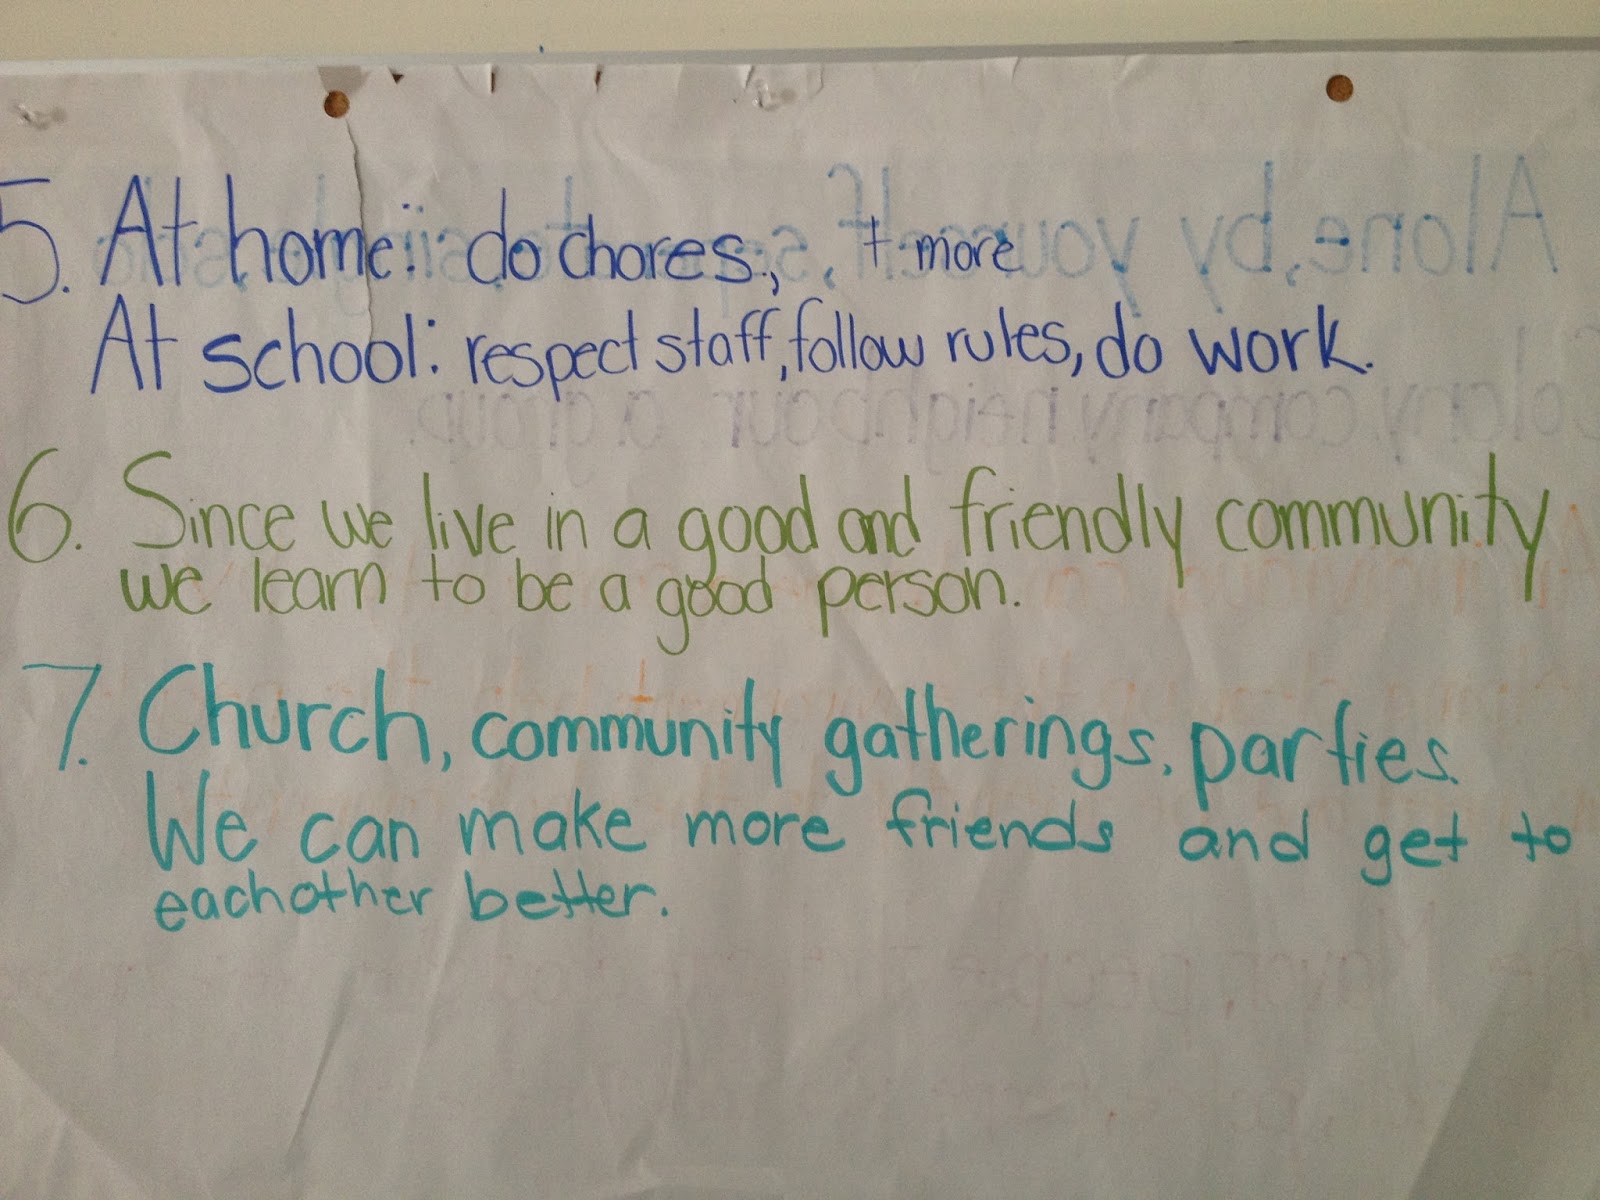 5. At home: do chores., + more
At school: respect staff, follow rules, do work.
6. Since we live in a good and friendly community
we learn to be a good person.
7. Church, community gatherings, parties.
We can make more friends and get to
eachother better.
Alone, by yourself,
company, neighbour, a group.